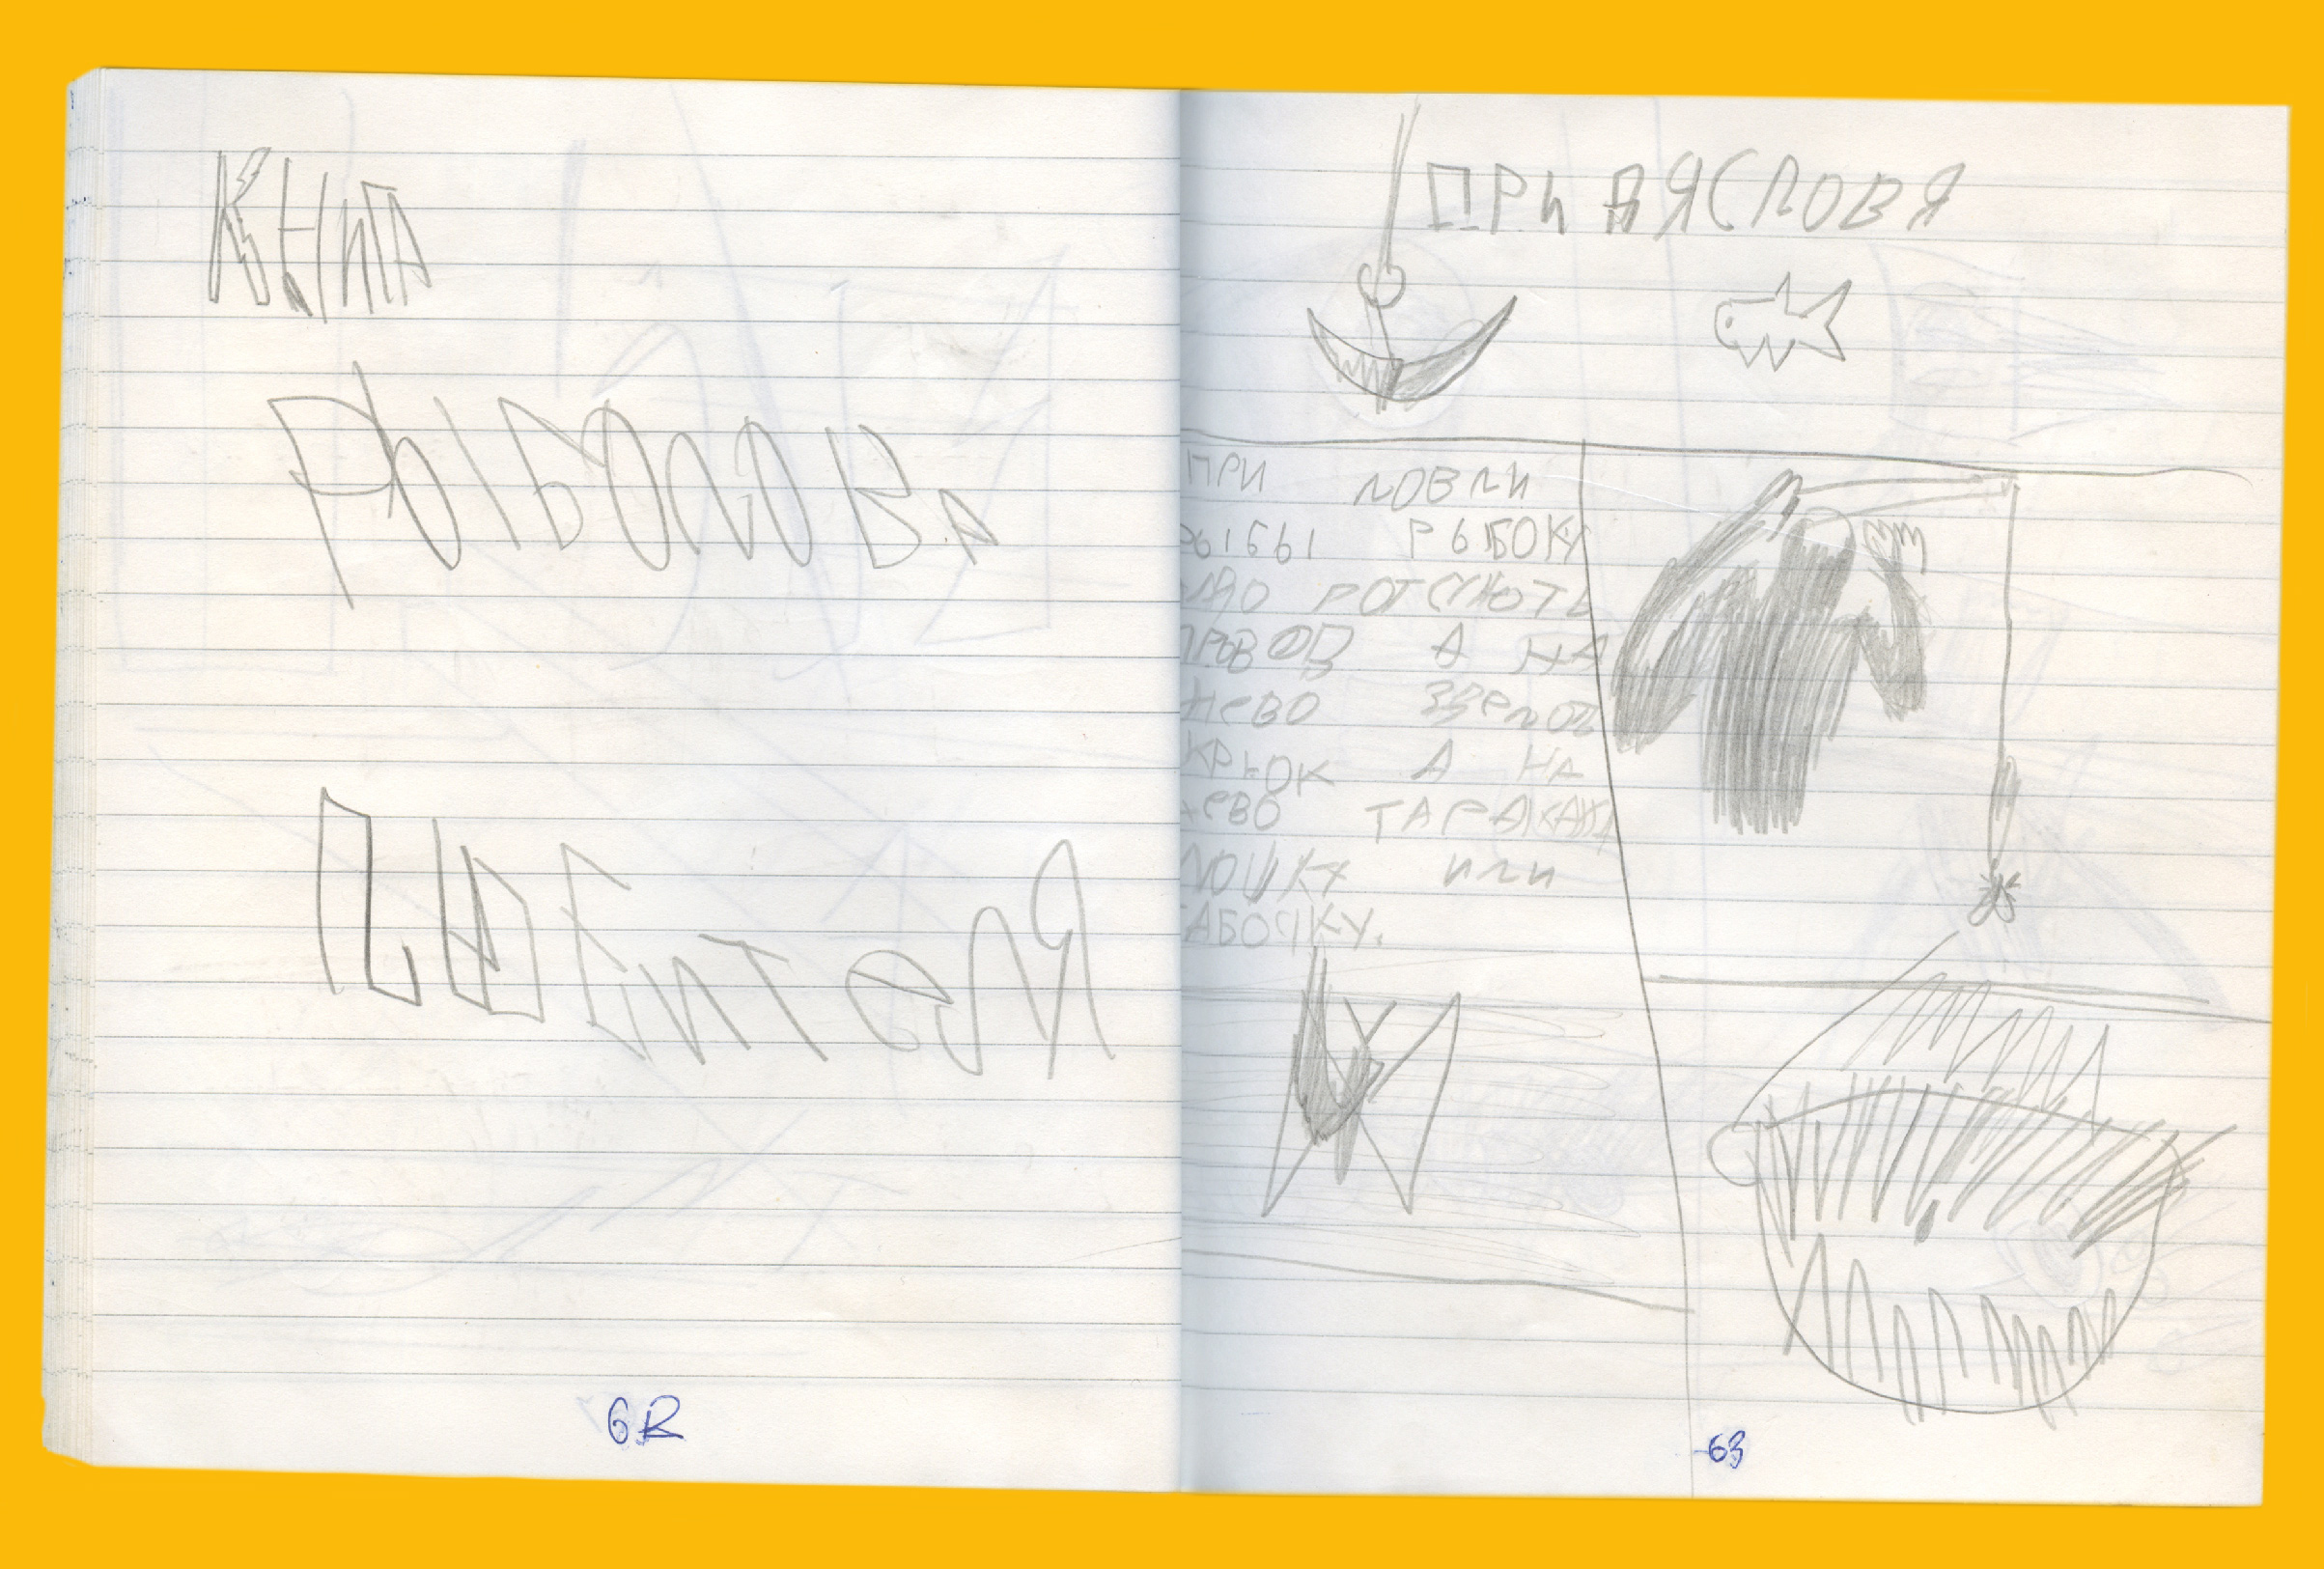 КНИГА
РЫБОЛОВА
ЛЮБИТЕЛЯ
62
ПРИДЯСЛОВЯ
ПРИ ЛОВЛИ
РЫБЫ РЫБОКУ
ПРОВОД А НА
НЕВО
КРЮК А НА
НЕВО ТАРАКАНА
МОШКУ ИЛИ
БАБОЧКУ.
63